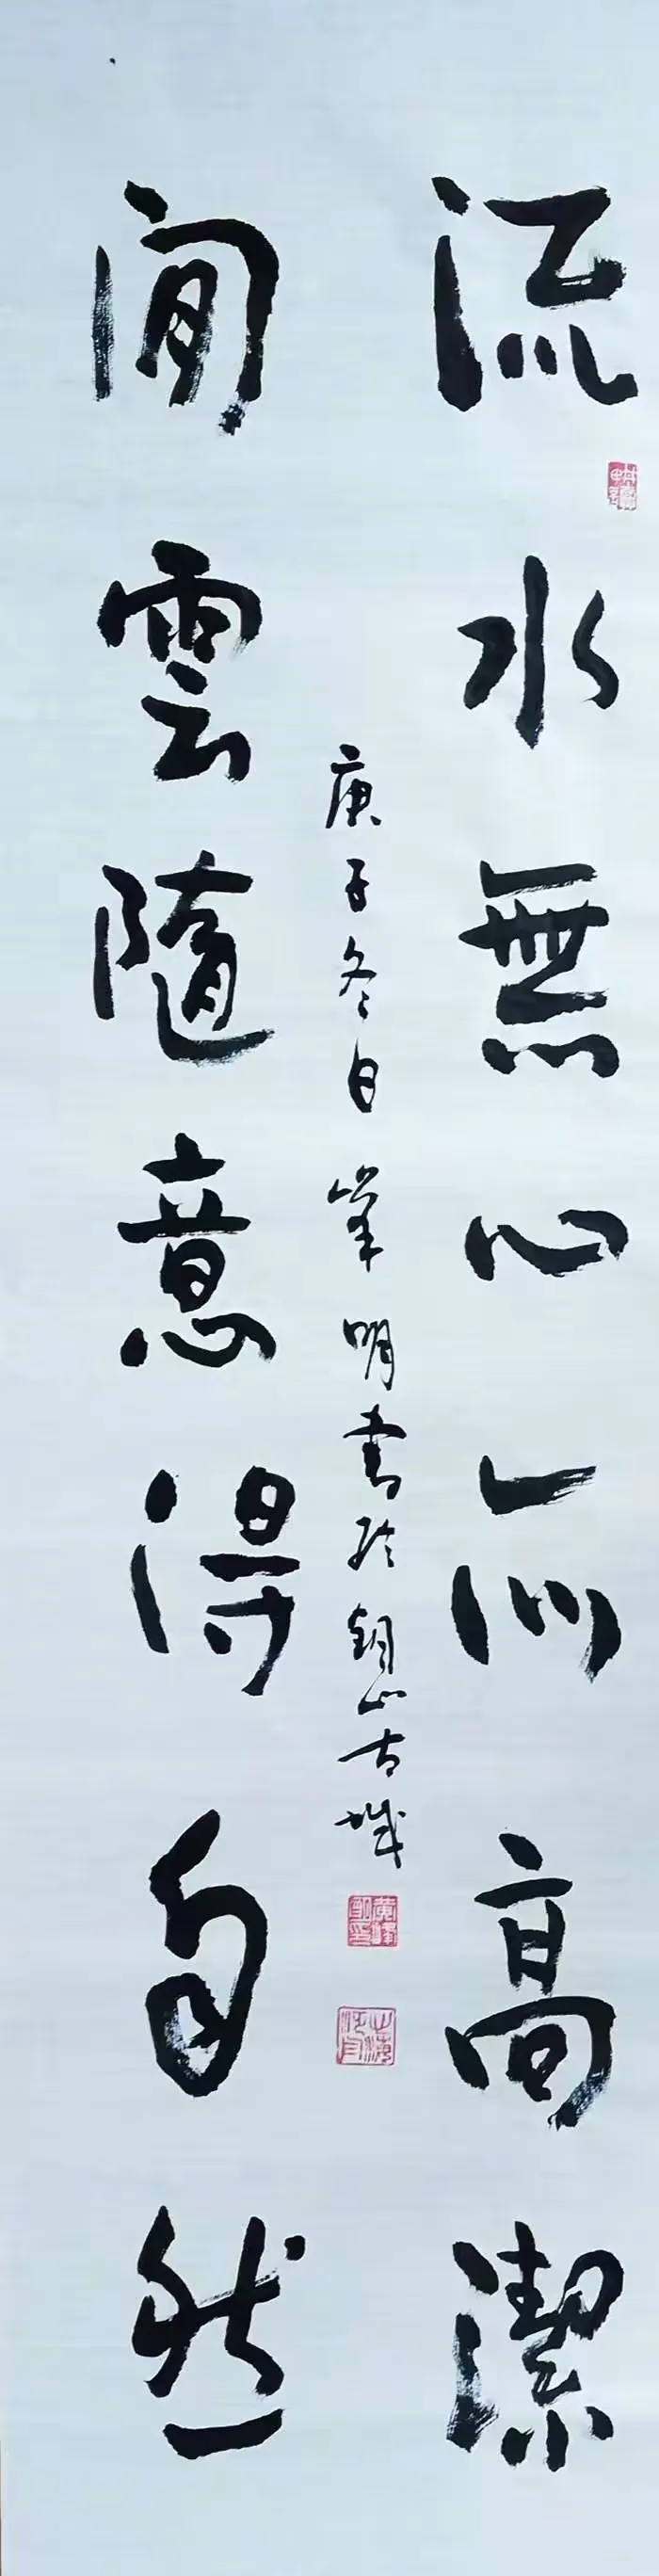 流水無心而高潔
閒雲隨意得自然
庚子冬日峯明書於銅山古城
黄峰明印